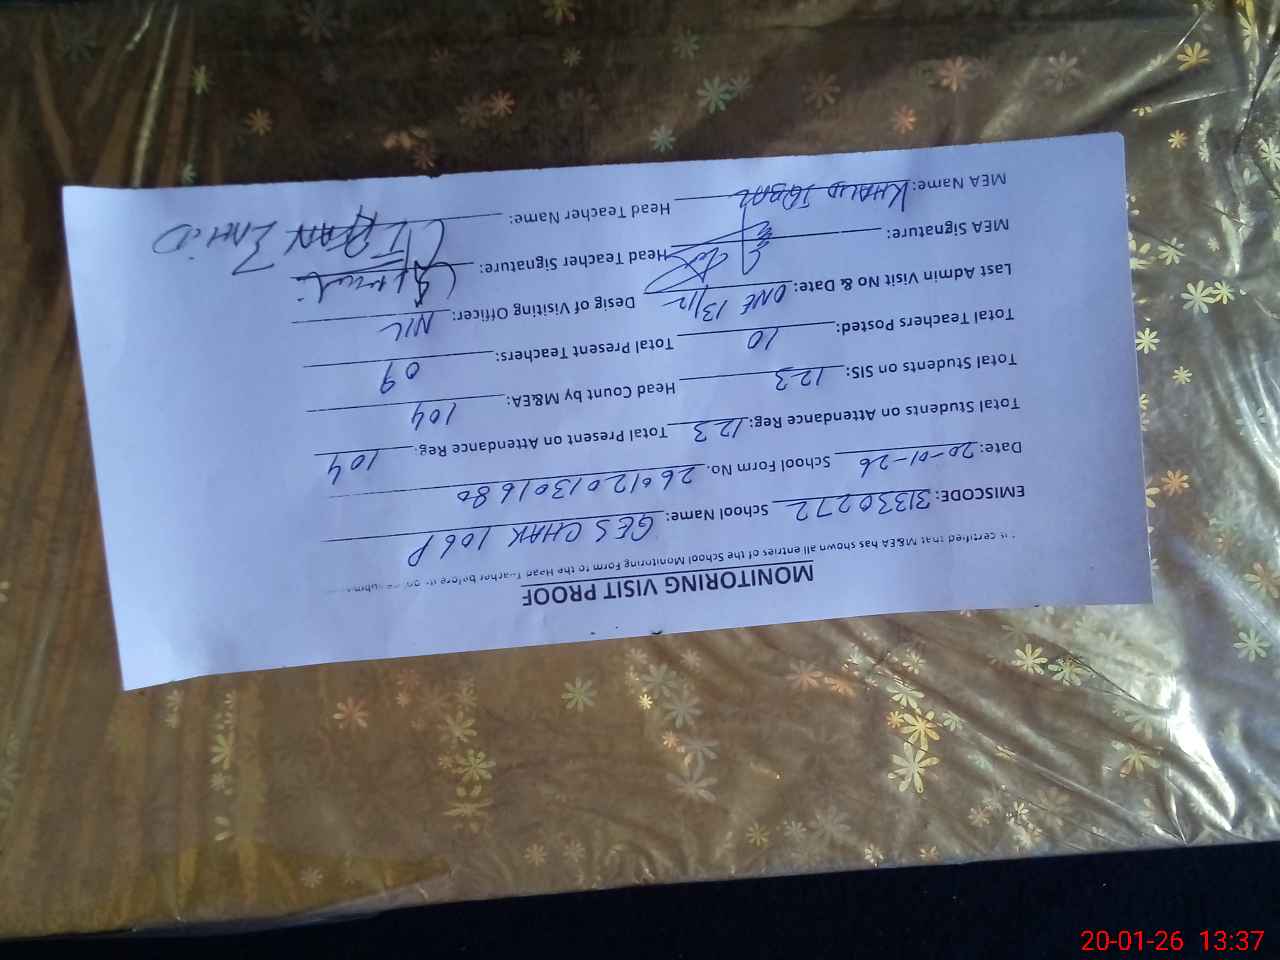 MONITORING VISIT PROOF
is certified that M&EA has shown all entries of the School Monitoring Form to the Head Teacher before its
EMISCODE: 31330272 School Name: GES CHAK 106P
Date: 20-01-26 School Form No. 2601201301680
Total Students on Attendance Reg: 123 Total Present on Attendance Reg. 104
Total Students on SIS: 123 Head Count by M&EA: 104
Total Teachers Posted: 10 Total Present Teachers: 09
Last Admin Visit No & Date: ONE 13/12 Desig of Visiting Officer: NIL
MEA Signature: Head Teacher Signature:
MEA Name: KHALID IQBAL Head Teacher Name:
20-01-26 13:37